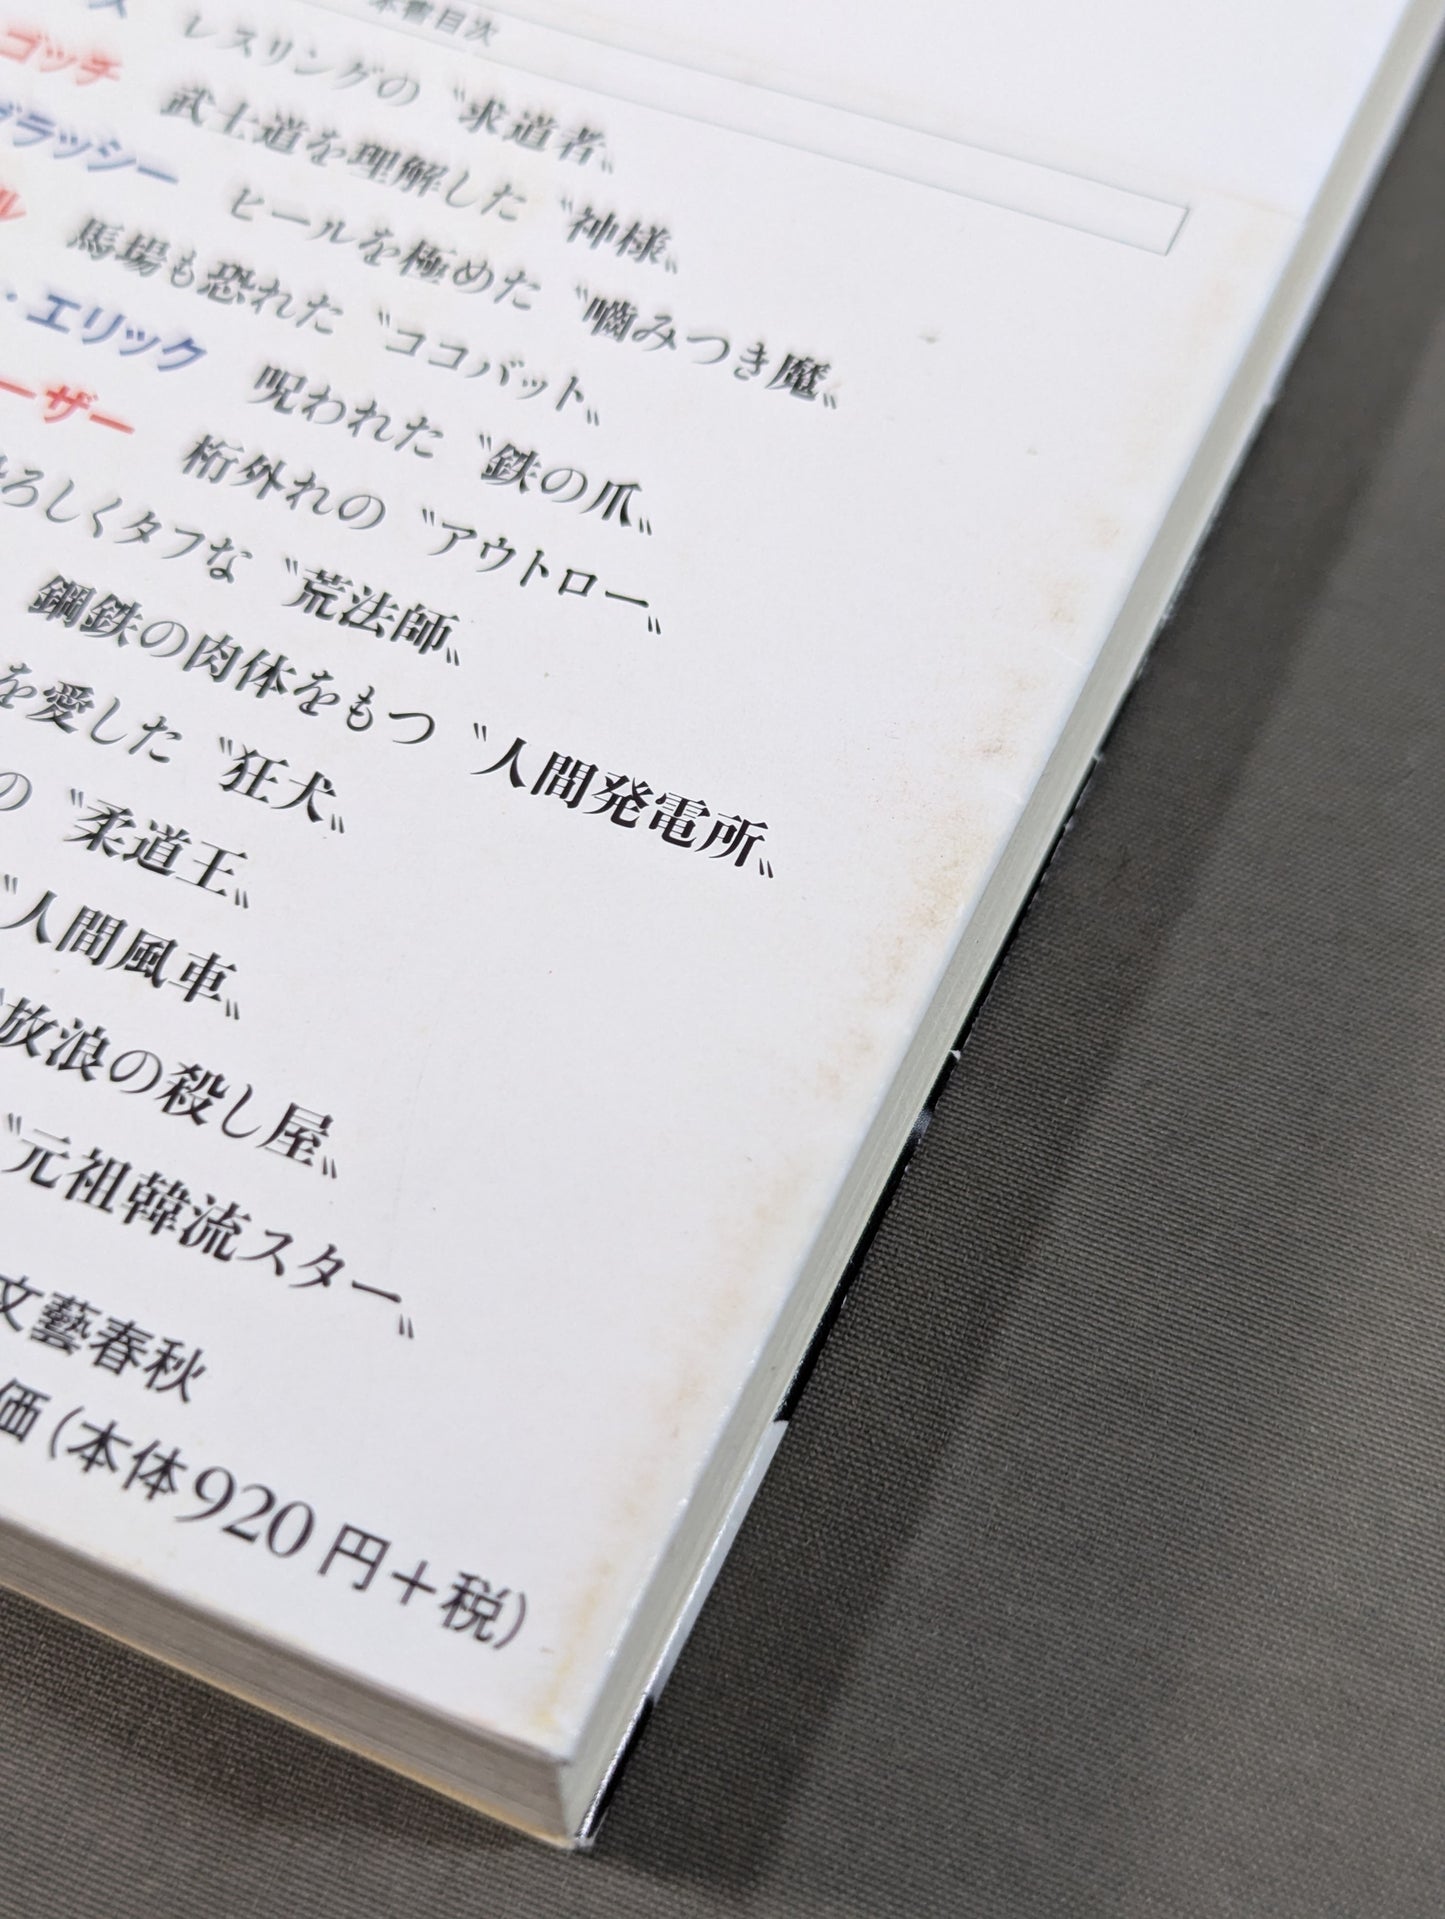 本書目次
ス レスリングの〝求道者〟
ゴッチ 武士道を理解した〝神様〟
ブラッシー ヒールを極めた〝嚙みつき魔〟
ル 馬場も恐れた〝ココバット〟
・エリック 呪われた〝鉄の爪〟
ーザー 桁外れの〝アウトロー〟
ろしくタフな〝荒法師〟
鋼鉄の肉体をもつ〝人間発電所〟
を愛した〝狂犬〟
の〝柔道王〟
〝人間風車〟
〝放浪の殺し屋〟
〝元祖韓流スター〟
文藝春秋
価(本体920円+税)